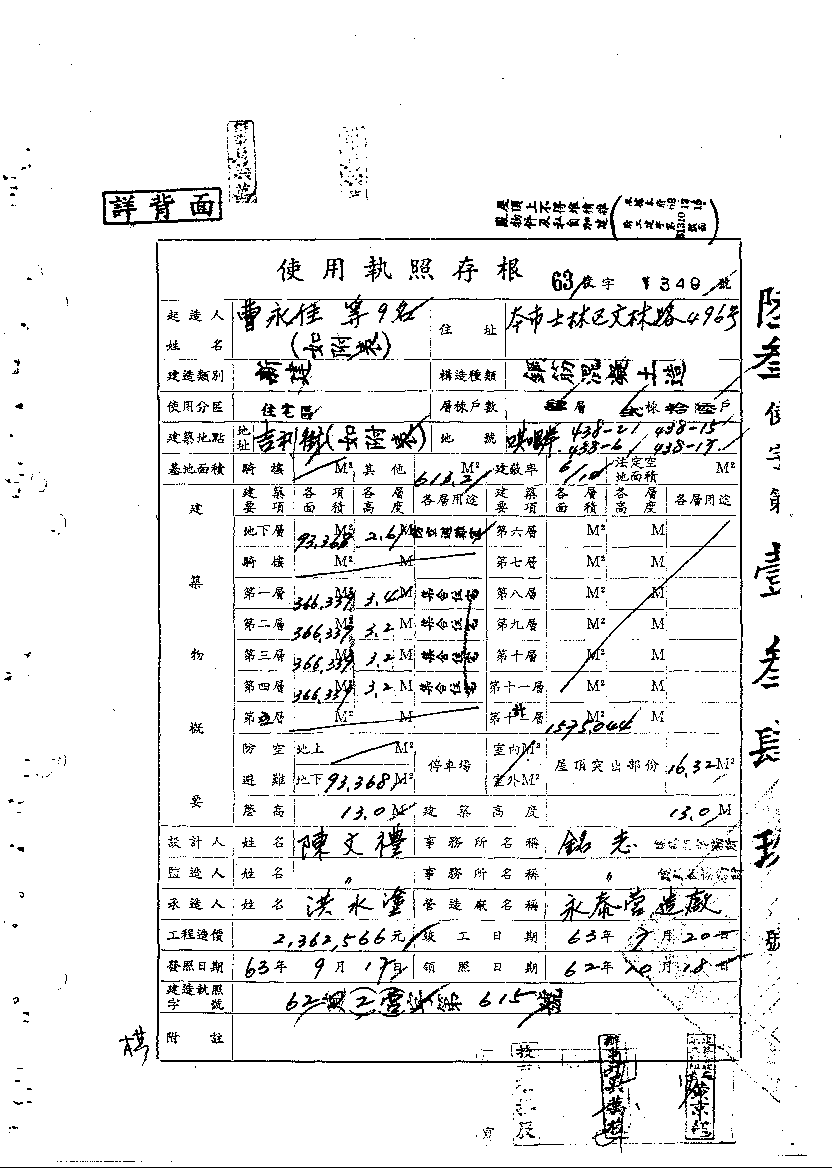 詳背面
使用執照存根 63 使字 1349 號
起造人姓名 曹永佳 等9名 (如附表) 住址 本市士林區文林路496號
建造類別 新建 構造種類 鋼筋混凝土造
使用分區 住宅區 層棟戶數 層 棟 戶
建築地點 地址 吉利街(如附表) 地號 唭哩岸 438-21 438-15
438-6 438-17
基地面積 騎樓 M² 其他 613.21 M² 建蔽率 6/10 法定空地面積 M²
建築物概要
建築要項 各項面積 各層高度 各層用途 建築要項 各層面積 各層高度 各層用途
地下層 93.368 M² 2.6 M 第六層 M² M
騎樓 M² M 第七層 M² M
第一層 366.339 M² 3.4 M 集合住宅 第八層 M² M
第二層 366.339 M² 3.2 M 集合住宅 第九層 M² M
第三層 366.339 M² 3.2 M 集合住宅 第十層 M² M
第四層 366.339 M² 3.2 M 集合住宅 第十一層 M² M
第五層 M² M 第十 層 計 1575.044
防空避難 地上 M² 停車場 室內 M² 屋頂突出部份 16.32 M²
地下 93.368 M² 室外 M²
簷高 13.0 M 建築高度 13.0 M
設計人 姓名 陳文禮 事務所名稱 銘志
監造人 姓名 〃 事務所名稱 〃
承造人 姓名 洪水塗 營造廠名稱 永泰營造廠
工程造價 2,362,566元 竣工日期 63年 9月 20日
發照日期 63年 9月 17日 領照日期 62年 10月 18日
建造執照字號 62 615號
附註
陸叁使字第壹叁肆玖號